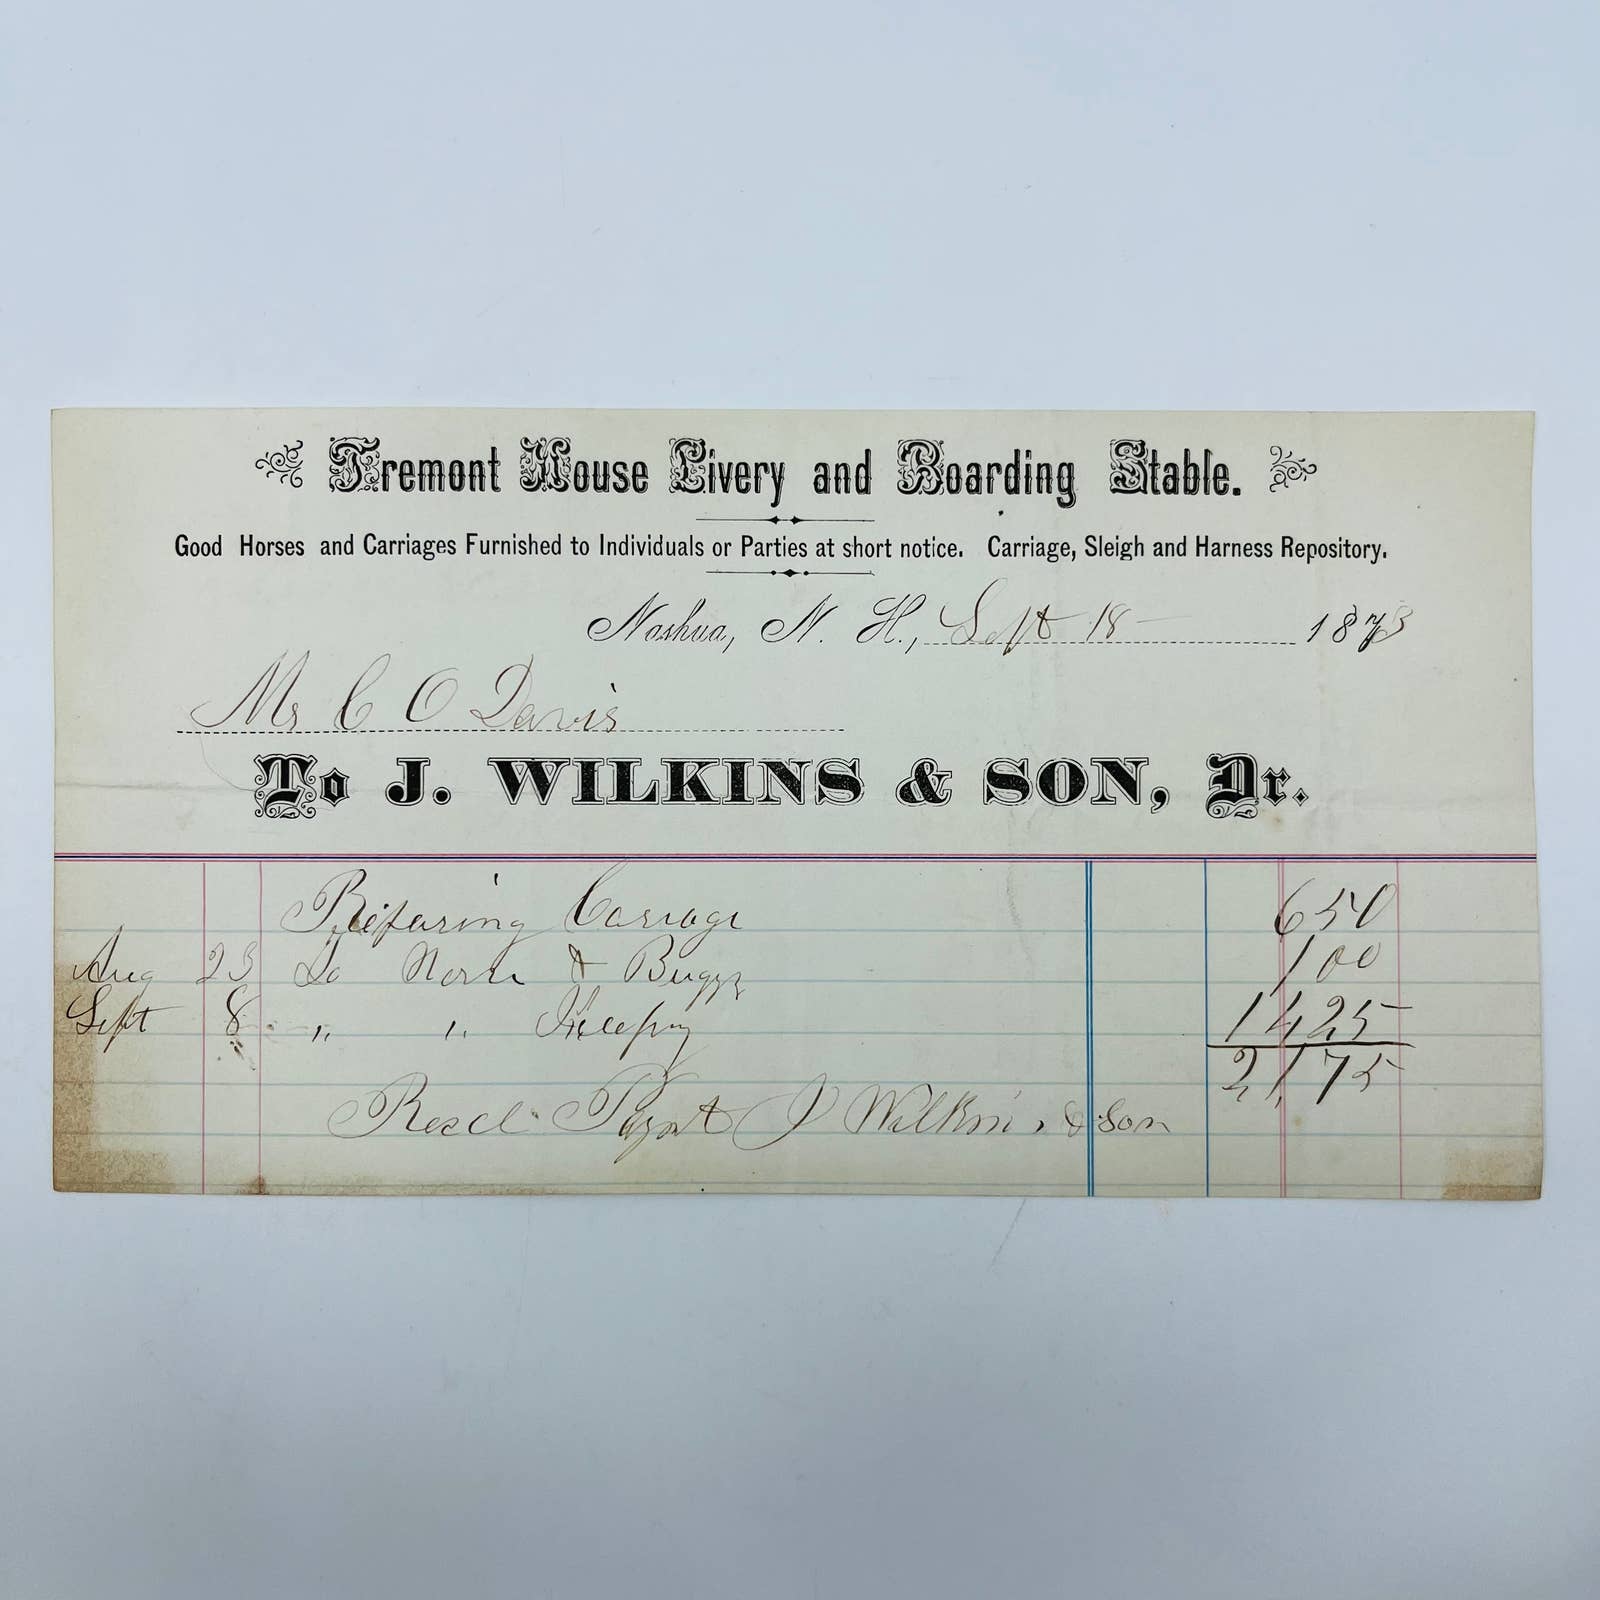 Tremont House Livery and Boarding Stable.
Good Horses and Carriages Furnished to Individuals or Parties at short notice. Carriage, Sleigh and Harness Repository.
Nashua, N. H., Sept 18 1873
Mr C O Davis
To J. WILKINS & SON, Dr.
Repairing Carriage 6 50
Aug 23 To Horse & Buggy 1 00
Sept 8 " " Keeping 14 25
21 75
Recd Paymt J Wilkins & Son